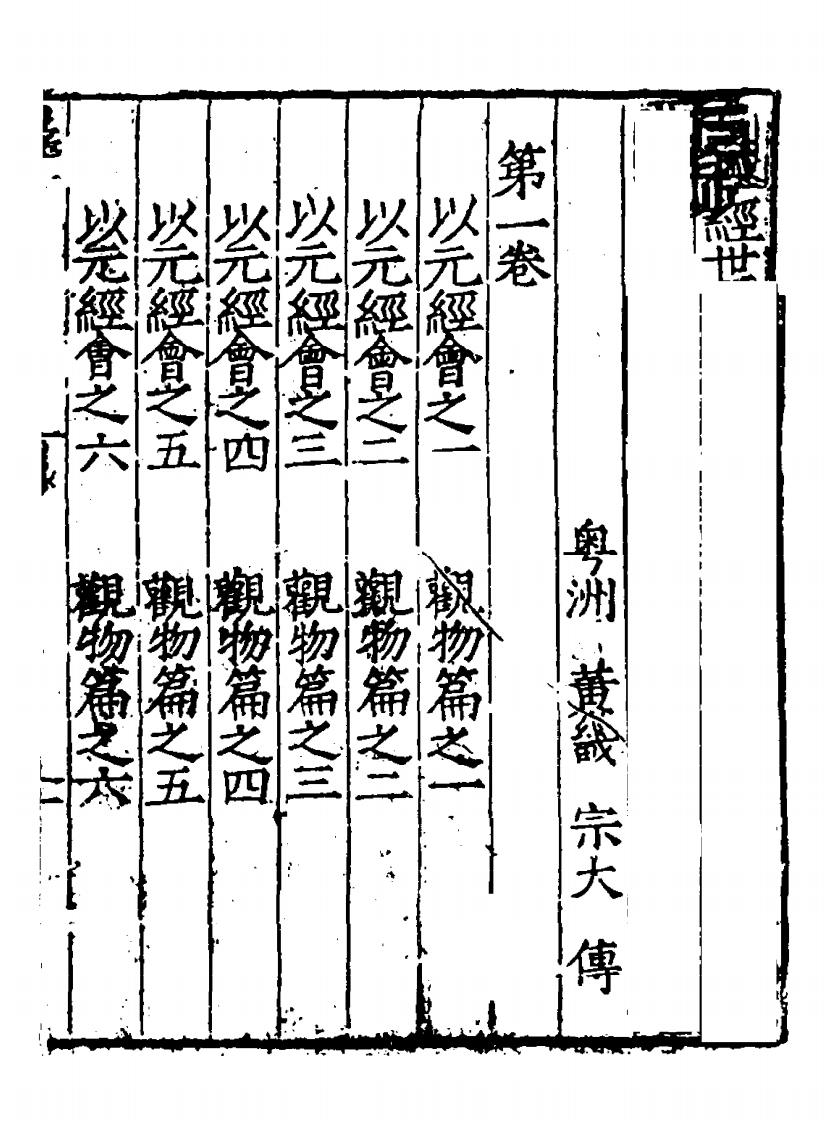 經世
粤洲 黄畿 宗大 傳
第一卷
以元經會之一 觀物篇之一
以元經會之二 觀物篇之二
以元經會之三 觀物篇之三
以元經會之四 觀物篇之四
以元經會之五 觀物篇之五
以元經會之六 觀物篇之六